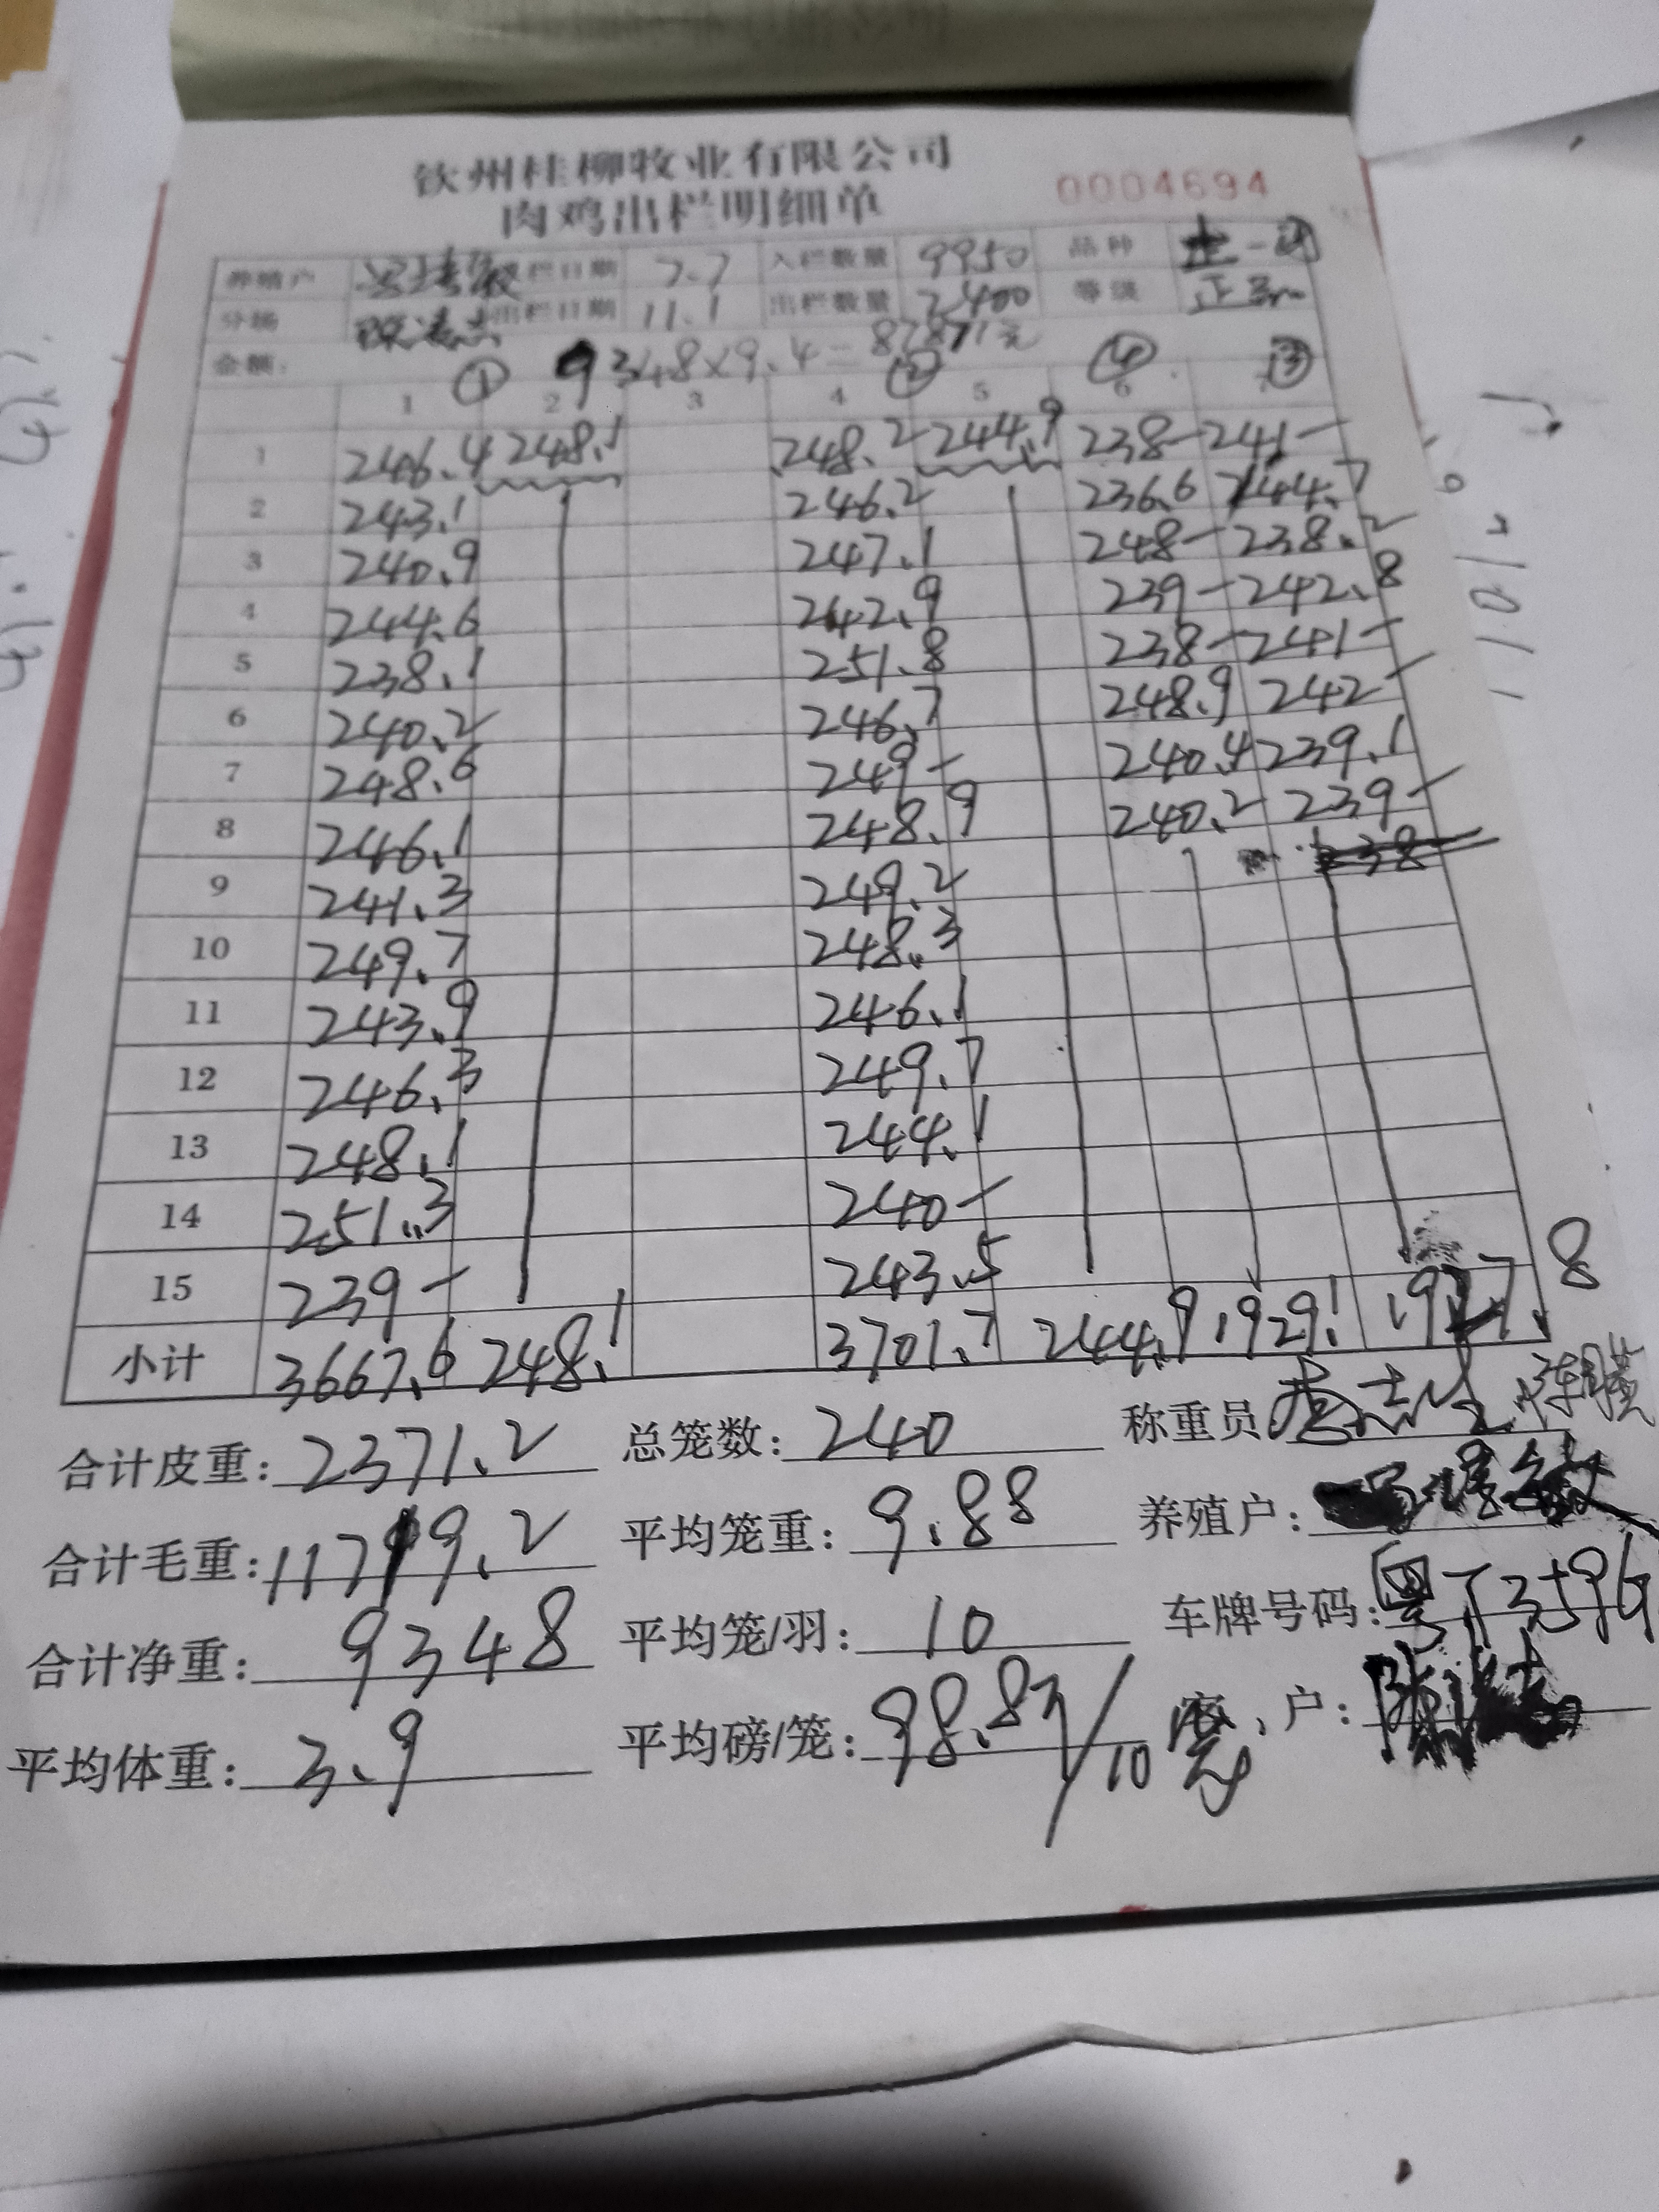 钦州桂柳牧业有限公司
肉鸡出栏明细单 0004694
养殖户 栏日期 7.7 入栏数量 9950 品种
分场 出栏日期 11.1 出栏数量 2400 等级 正
金额: 9348×9.4=87871元
① ② ④ ③
1 2 3 4 5 6
1 246.4 248.1 248.2 244.9 238- 241-
2 243.1 246.2 236.6 244.7
3 240.9 247.1 248- 238.2
4 244.6 242.9 239- 242.8
5 238.1 251.8 238- 241-
6 240.2 246.7 248.9 242-
7 248.6 249- 240.4 239.1
8 246.1 248.9 240.2 239-
9 241.3 249.2 238
10 249.7 248.3
11 243.9 246.1
12 246.3 249.7
13 248.1 244.1
14 251.3 240-
15 239- 243.5
小计 3667.6 248.1 3701.7 244.9 1929.1 1927.8
合计皮重: 2371.2 总笼数: 240 称重员
合计毛重: 11719.2 平均笼重: 9.88 养殖户:
合计净重: 9348 平均笼/羽: 10 车牌号码:
平均体重: 3.9 平均磅/笼: 98.83/10 客户: